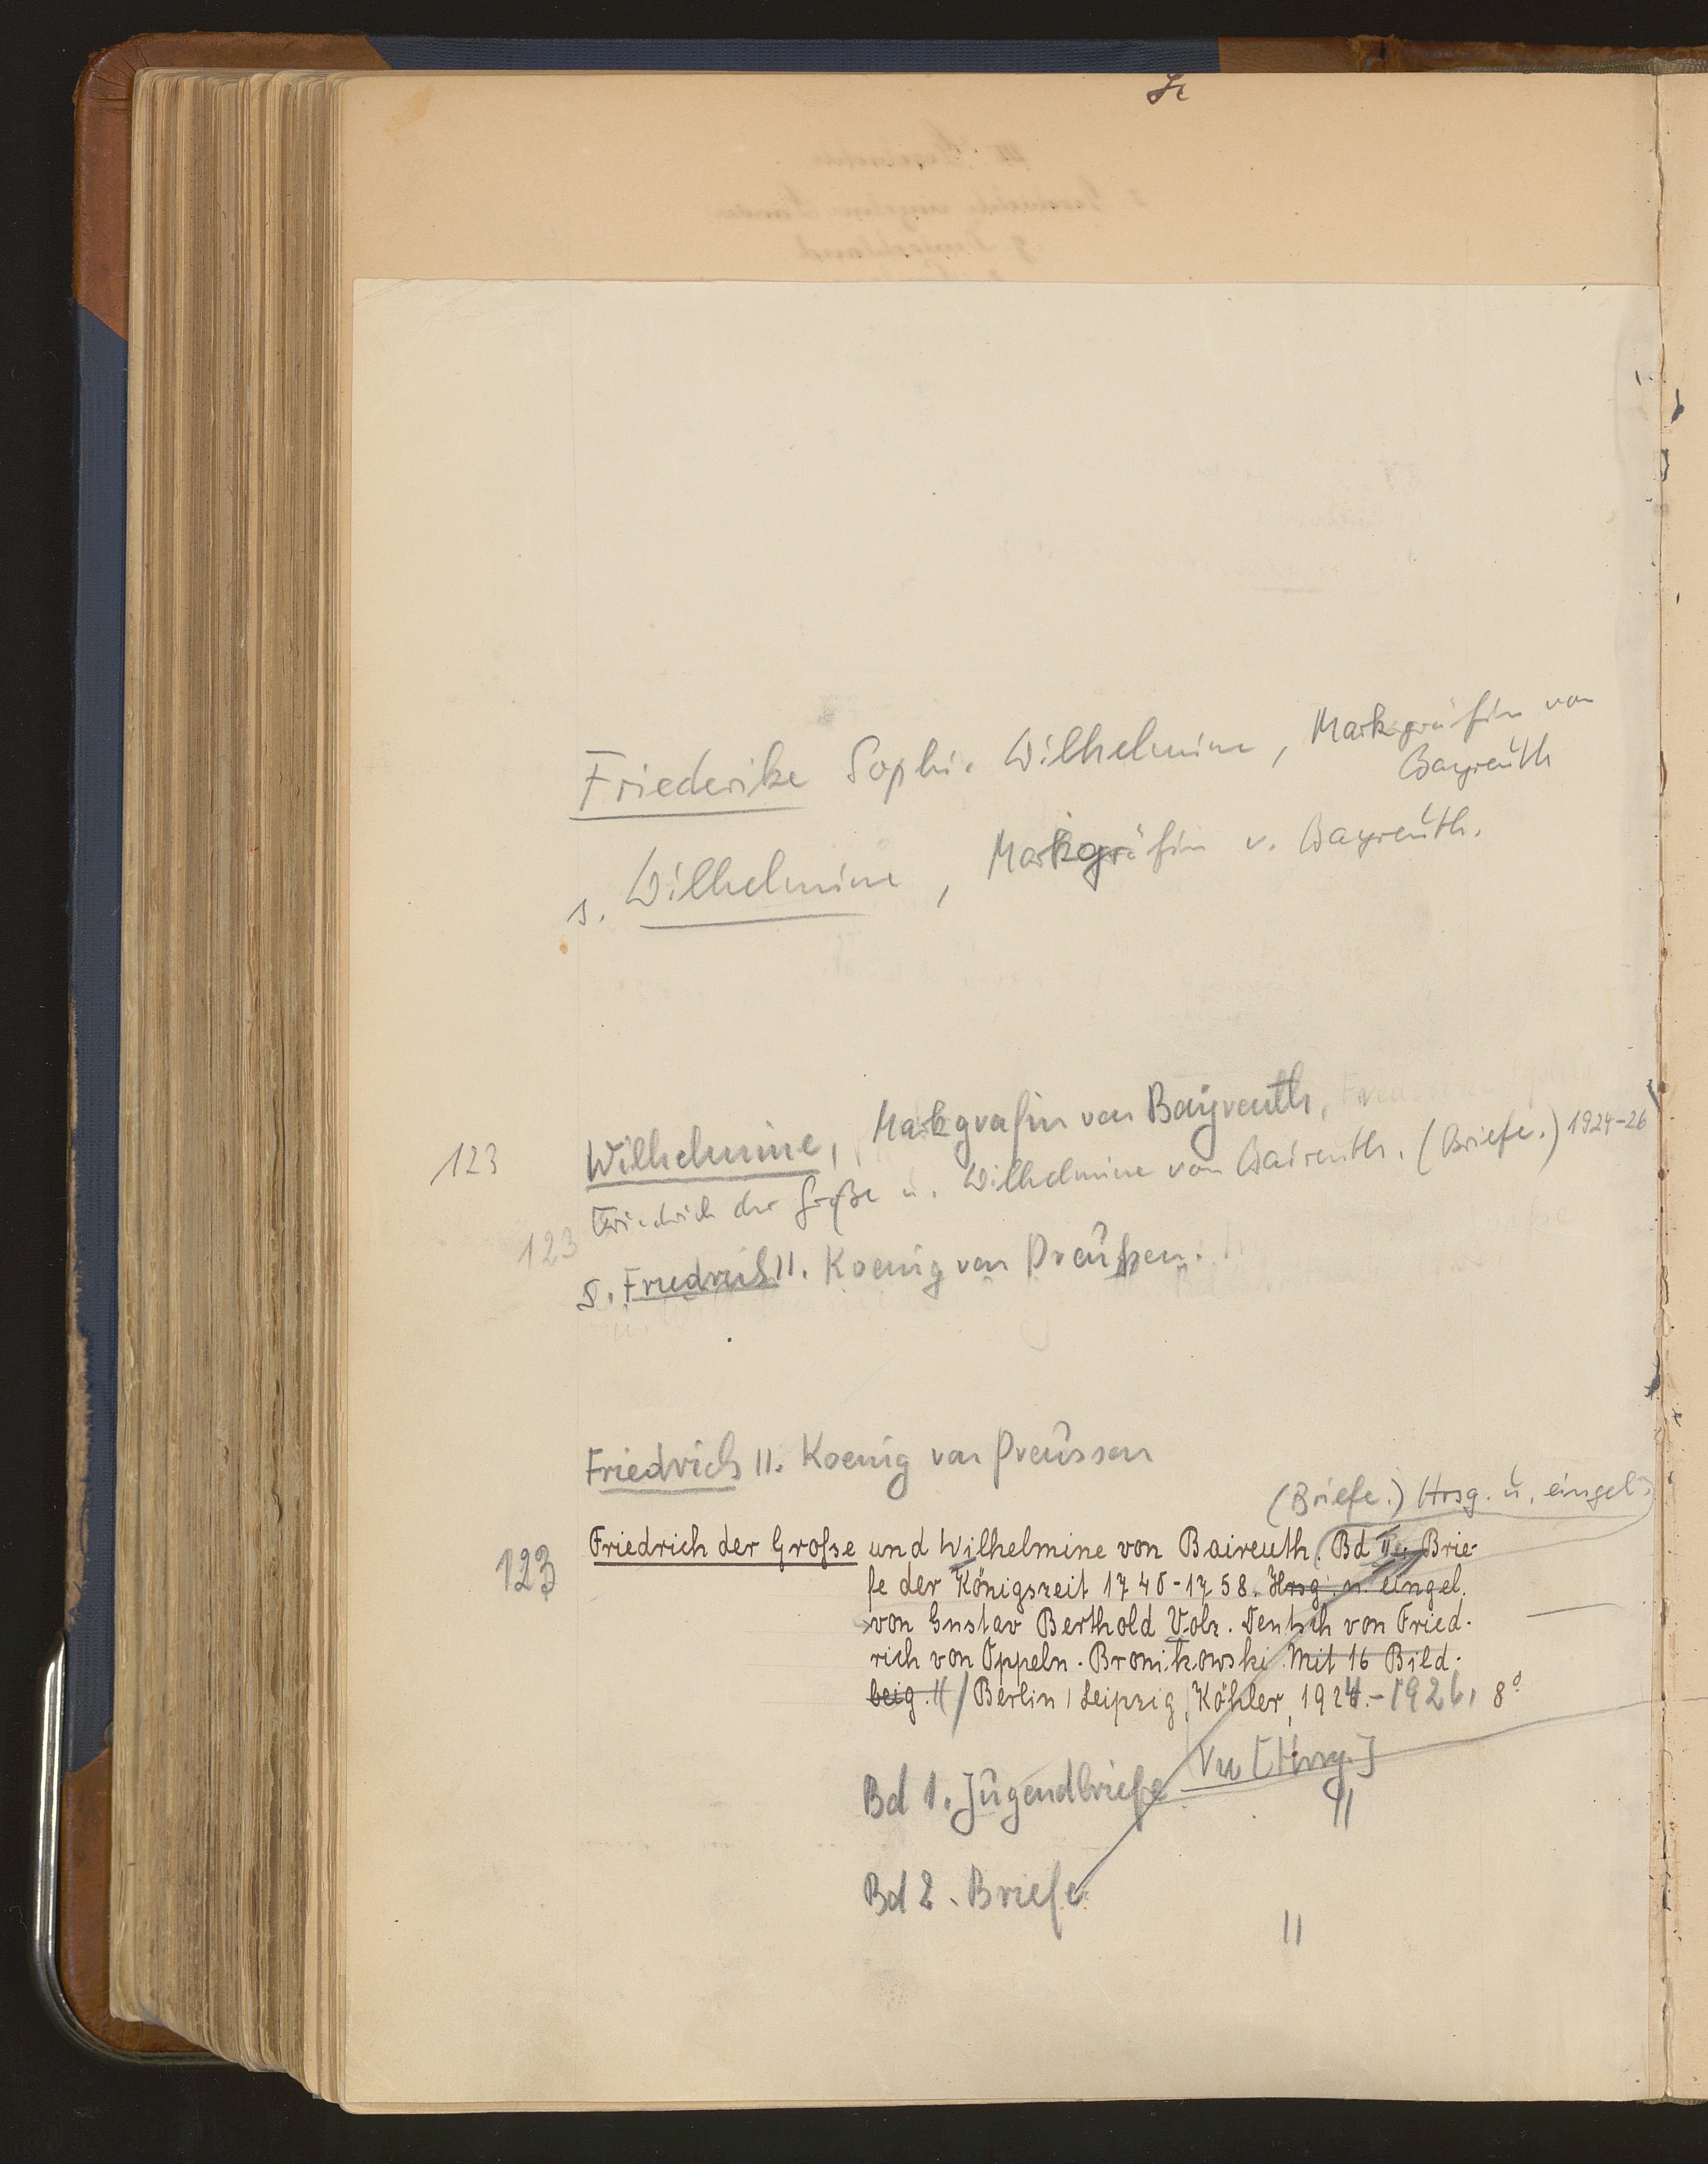 Friederike Sophie Wilhelmine, Markgräfin von
Bayreuth
s. Wilhelmine, Markgräfin v. Bayreuth.
123 Wilhelmine, Markgrafin von Bayreuth,
Friedrich der Große u. Wilhelmine von Baireuth. (Briefe.) 1924-26
123
s. Friedrich II. Koenig von Preußen.
Friedrich II. Koenig von Preussen
(Briefe.) Hrsg. u. eingel.
123 Friedrich der Große und Wilhelmine von Baireuth. Bd II. Brie-
fe der Königszeit 1740-1758. Hrsg. u. eingel.
von Gustav Berthold Volz. Deutsch von Fried-
rich von Oppeln-Bronikowski. Mit 16 Bild-
beig. // Berlin, Leipzig, Köhler, 1924.-1926. 8°
Vu [Hrsg.]
Bd 1. Jugendbriefe
//
Bd 2. Briefe
//